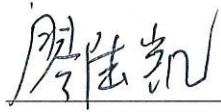 廖陆凯